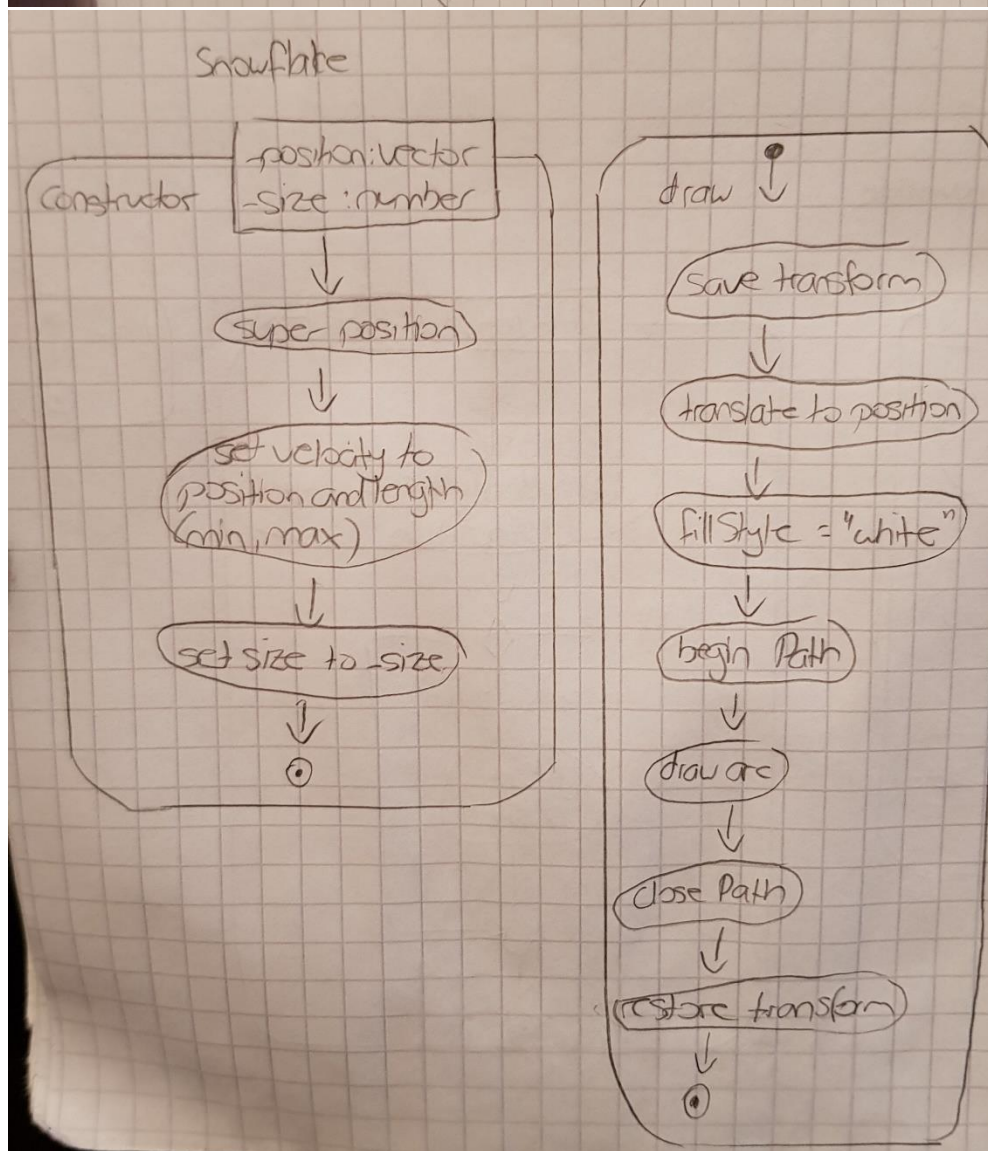 Snowflake
Constructor
-position: vector
-size: number
super position
set velocity to
position and length
(min, max)
set size to -size
draw
save transform
translate to position
fillStyle = "white"
begin Path
draw arc
close Path
restore transform